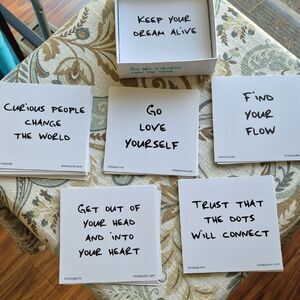 KEEP YOUR
DREAM ALIVE
YOU ARE STRONGER
THAN YOU THINK
CURIOUS PEOPLE
CHANGE
THE WORLD
GO
LOVE
YOURSELF
FIND
YOUR
FLOW
GET OUT OF
YOUR HEAD
AND INTO
YOUR HEART
TRUST THAT
THE DOTS
WILL CONNECT